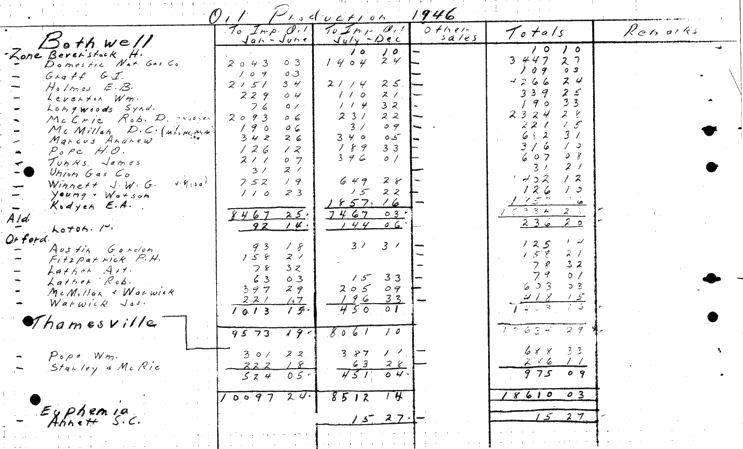 Oil Production 1946
To Imp. Oil Jan-June To Imp. Oil July-Dec Other sales Totals Remarks
Bothwell
-Zone Beverstock H. 10 10 — 10 10
- Domestic Nat Gas Co 2043 03 1404 24 — 3447 27
- Graff G.I. 109 03 — 109 03
- Holmes E.B. 2151 34 2114 25 — 4266 24
- Leverton Wm. 229 04 110 21 — 339 25
- Longwoods Synd. 76 01 114 32 — 190 33
- McCrie Rob. D. 2093 06 231 22 — 2324 28
- McMillan D.C. 190 06 31 09 — 221 15
- Marcus Andrew 342 26 340 05 — 682 31
- Pope H.O. 126 12 189 33 — 316 10
- Tunks, James 211 07 396 01 — 607 08
- Union Gas Co 31 21 — 31 21
- Winnett J.W.G. 752 19 649 28 — 12
- Young & Watson 110 23 15 22 — 126 10
- Kodyen E.A. 1857 16 —
8467 25 7467 03
Ald
- Loton 92 14 144 06 — 236 20
Orford.
- Austin Gordon 93 18 31 31 — 125
- Fitzpatrick P.H. 158 21 — 158 21
- Lather Art. 78 32 — 78 32
- Lather Rob. 63 03 15 33 — 79 01
- McMillan & Warwick 397 29 205 09 — 603 03
- Warwick Jas. 221 17 196 33 — 418 15
1013 15 450 01
Thamesville
9573 19 8061 10 29
- Pope Wm. 301 22 387 11 — 688 33
- Stanley & McRie 222 18 63 28 — 286 11
524 05 451 04 975 09
10097 24 8512 14 18610 03
Euphemia
- Annett S.C. 15 27 — 15 27